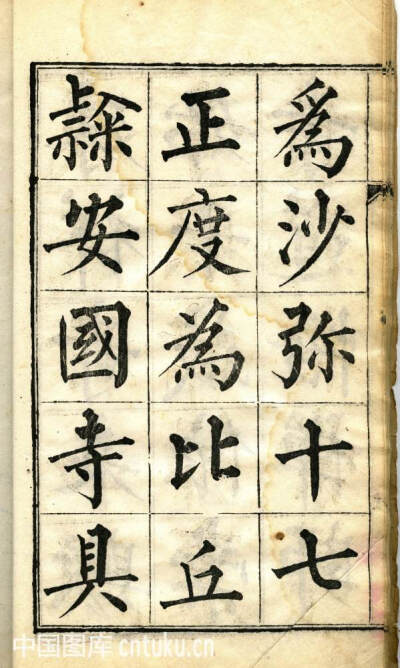 為沙弥十七
正度為比丘
隷安國寺具
中国图库 cntuku.cn